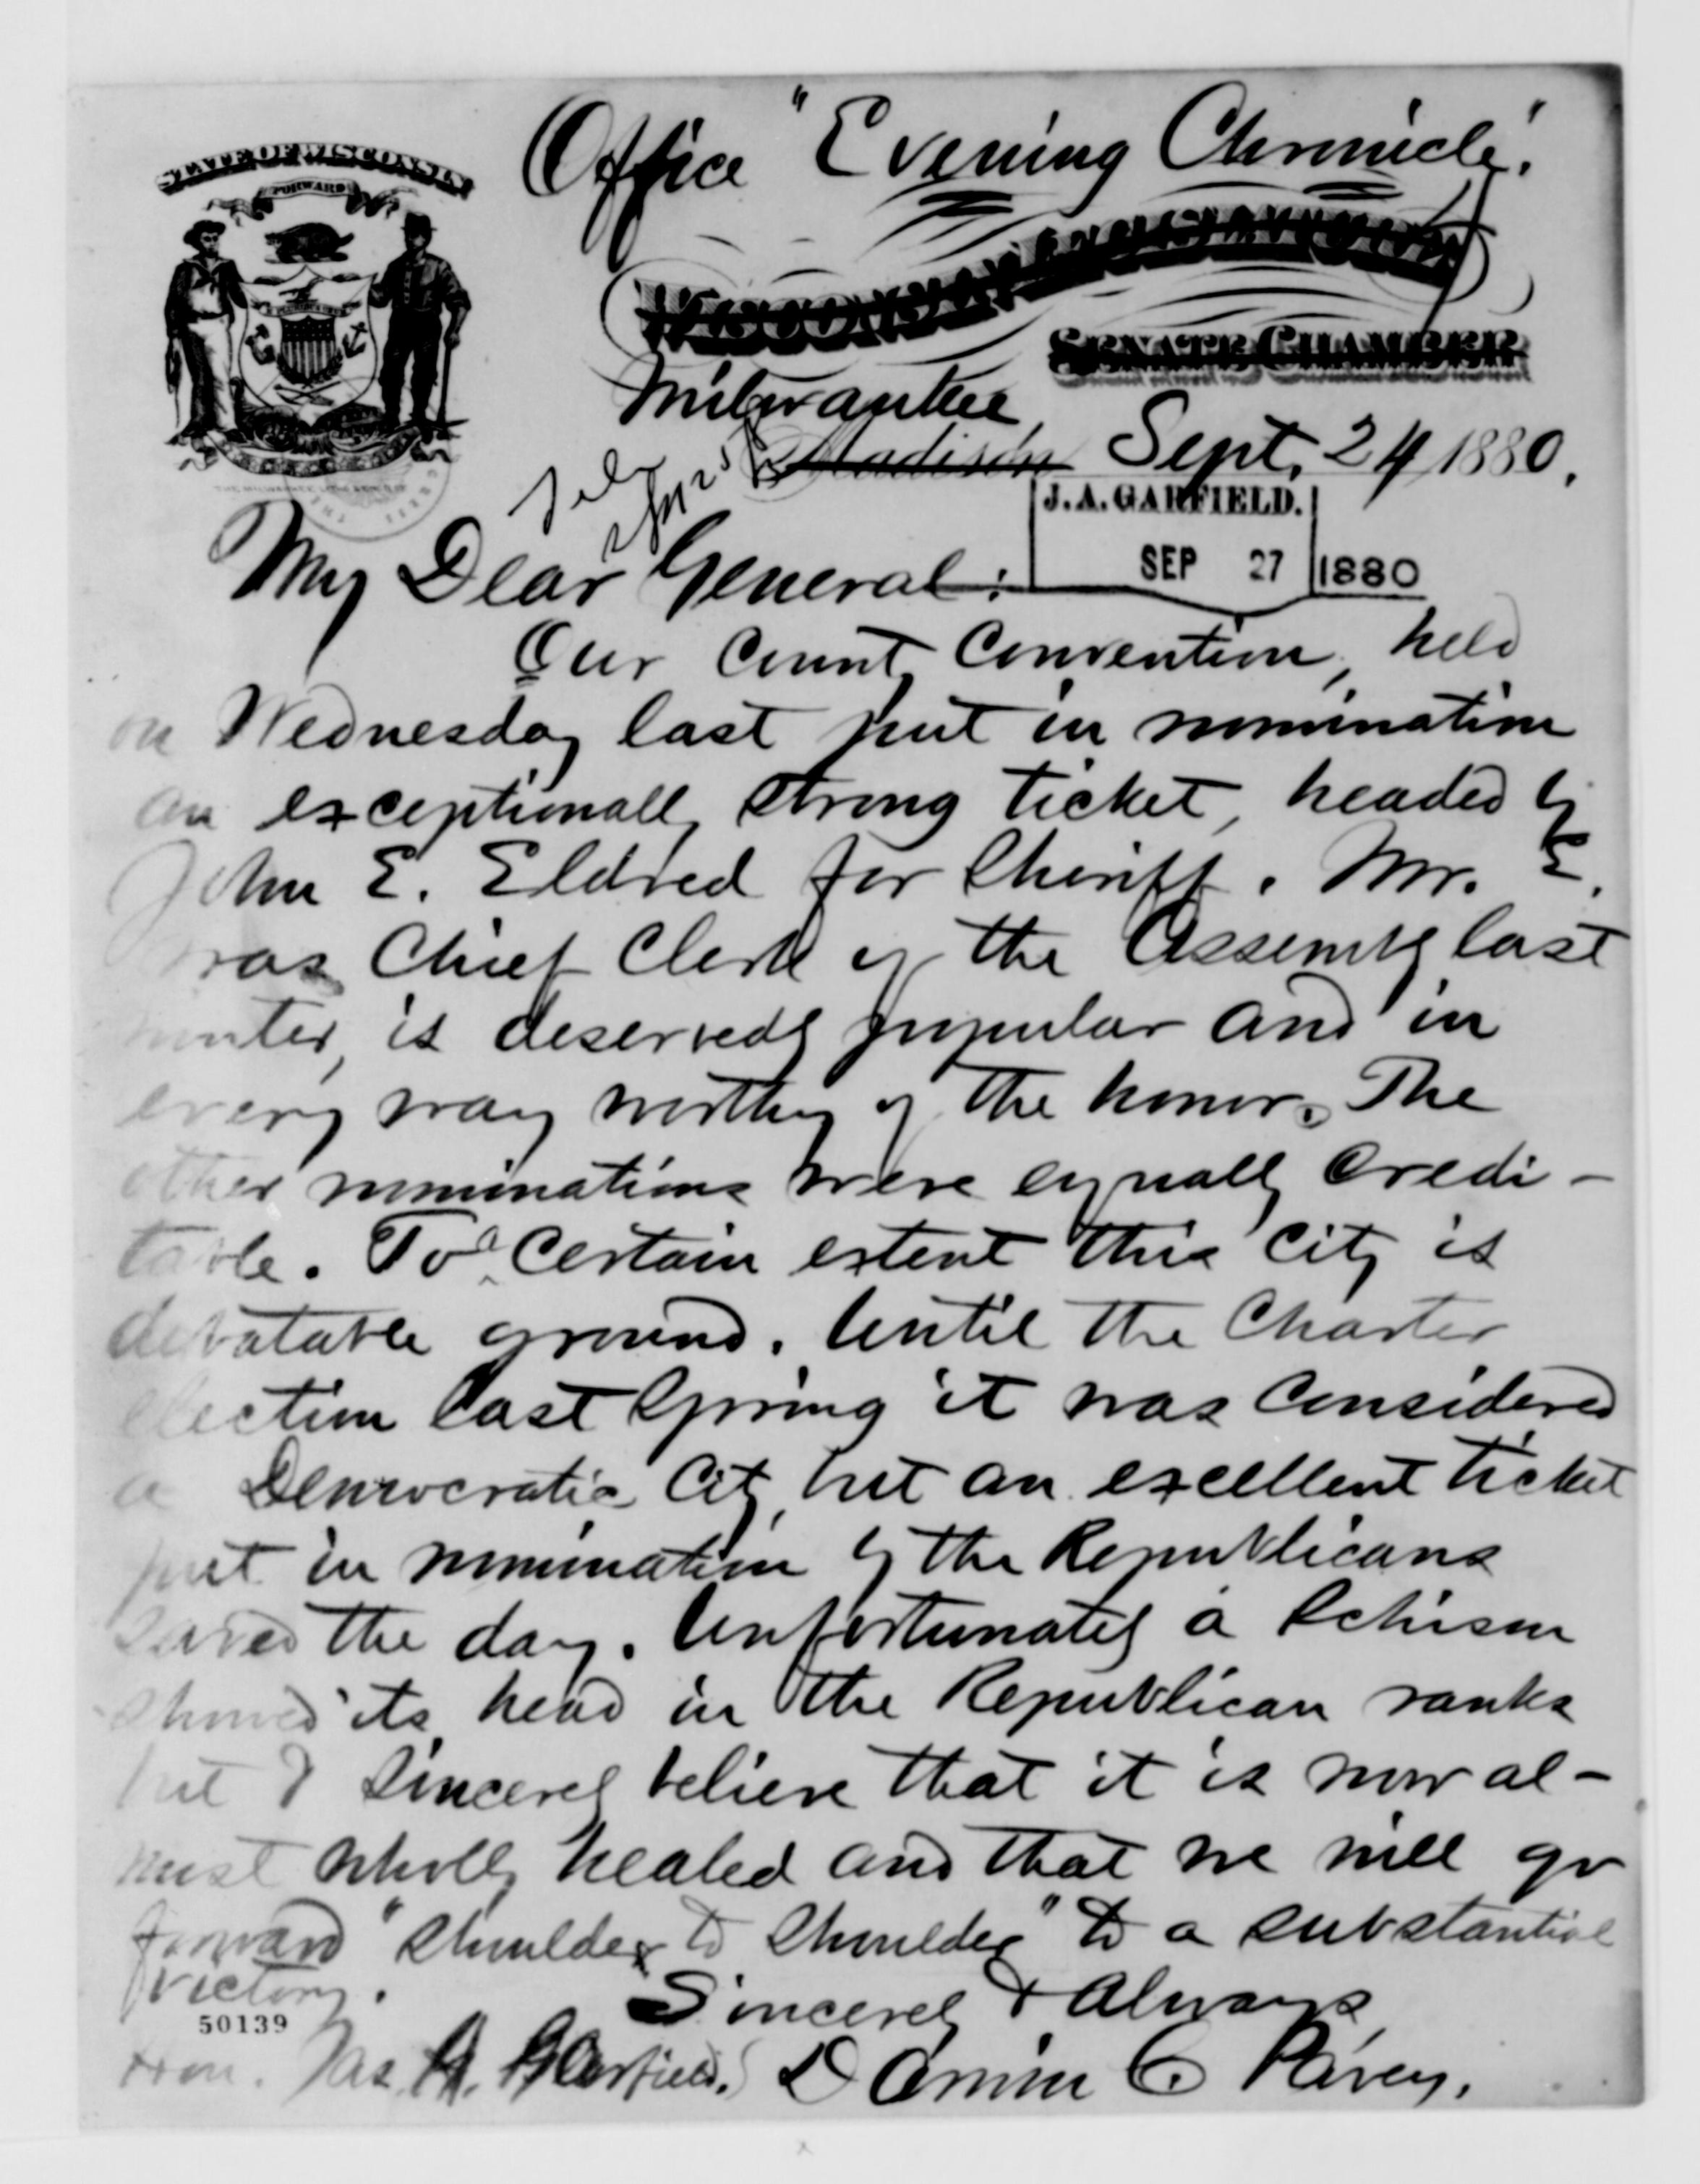 Office "Evening Chronicle".
STATE OF WISCONSIN
FORWARD
Wisconsin Legislature
SENATE CHAMBER
Milwaukee
Madison Sept. 24 1880.
J. A. GARFIELD.
SEP 27 1880
My Dear General:
Our County Convention, held
on Wednesday last put in nomination
an exceptionally strong ticket, headed by
John E. Eldred for Sheriff. Mr. E.
was Chief Clerk of the Assembly last
winter, is deservedly popular and in
every way worthy of the honor. The
other nominations were equally credi-
table. To a certain extent this city is
debatable ground. Until the Charter
election last Spring it was considered
a Democratic City, but an excellent ticket
put in nomination by the Republicans
saved the day. Unfortunately a schism
showed its head in the Republican ranks
but I sincerely believe that it is now al-
most wholly healed and that we will go
forward "shoulder to shoulder" to a substantial
victory.
Sincerely & Always
50139
Hon. Jas. A. Garfield. Dannie C. Pavey.